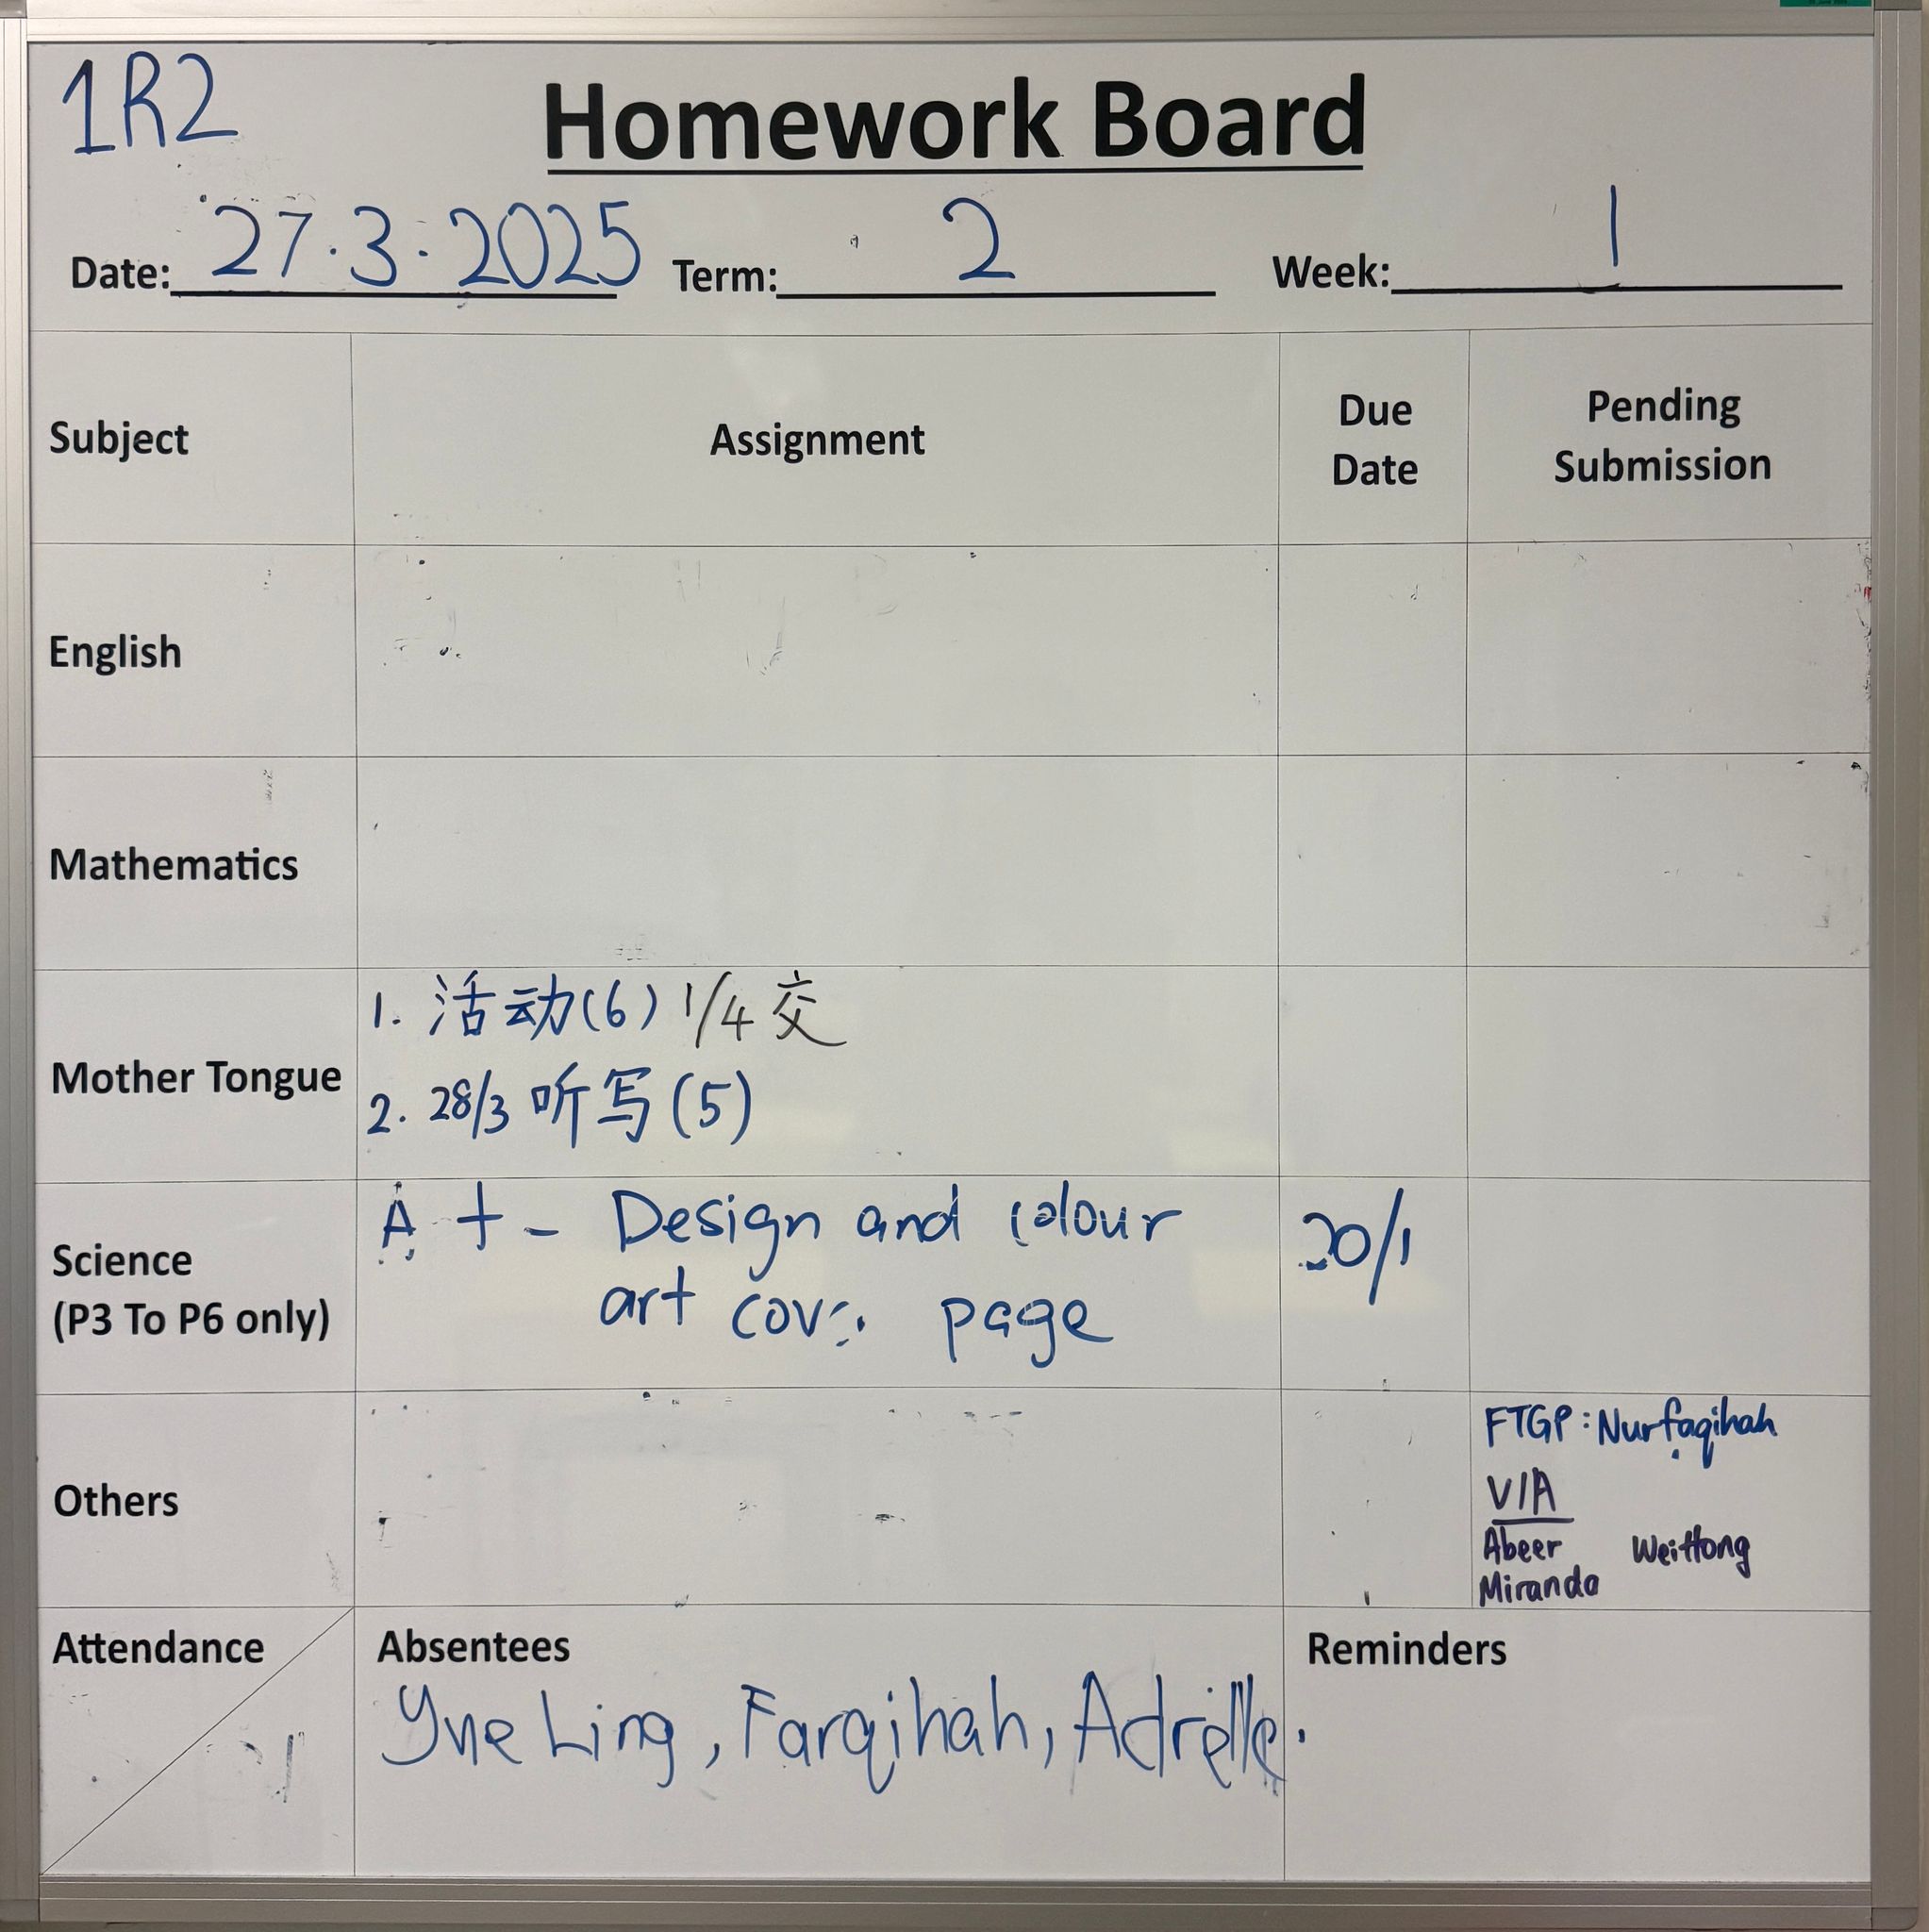 1R2
Homework Board
Date: 27.3.2025 Term: 2 Week: 1
Subject
Assignment
Due
Date
Pending
Submission
English
Mathematics
Mother Tongue
1. 活动(6) 1/4 交
2. 28/3 听写(5)
Science
(P3 To P6 only)
Design and colour
art page
20/1
Others
FTGP: Nurfaqihah
VIA
Abeer Weittong
Miranda
Attendance
Absentees
Yue Ling, Farqihah, Adrelle.
Reminders